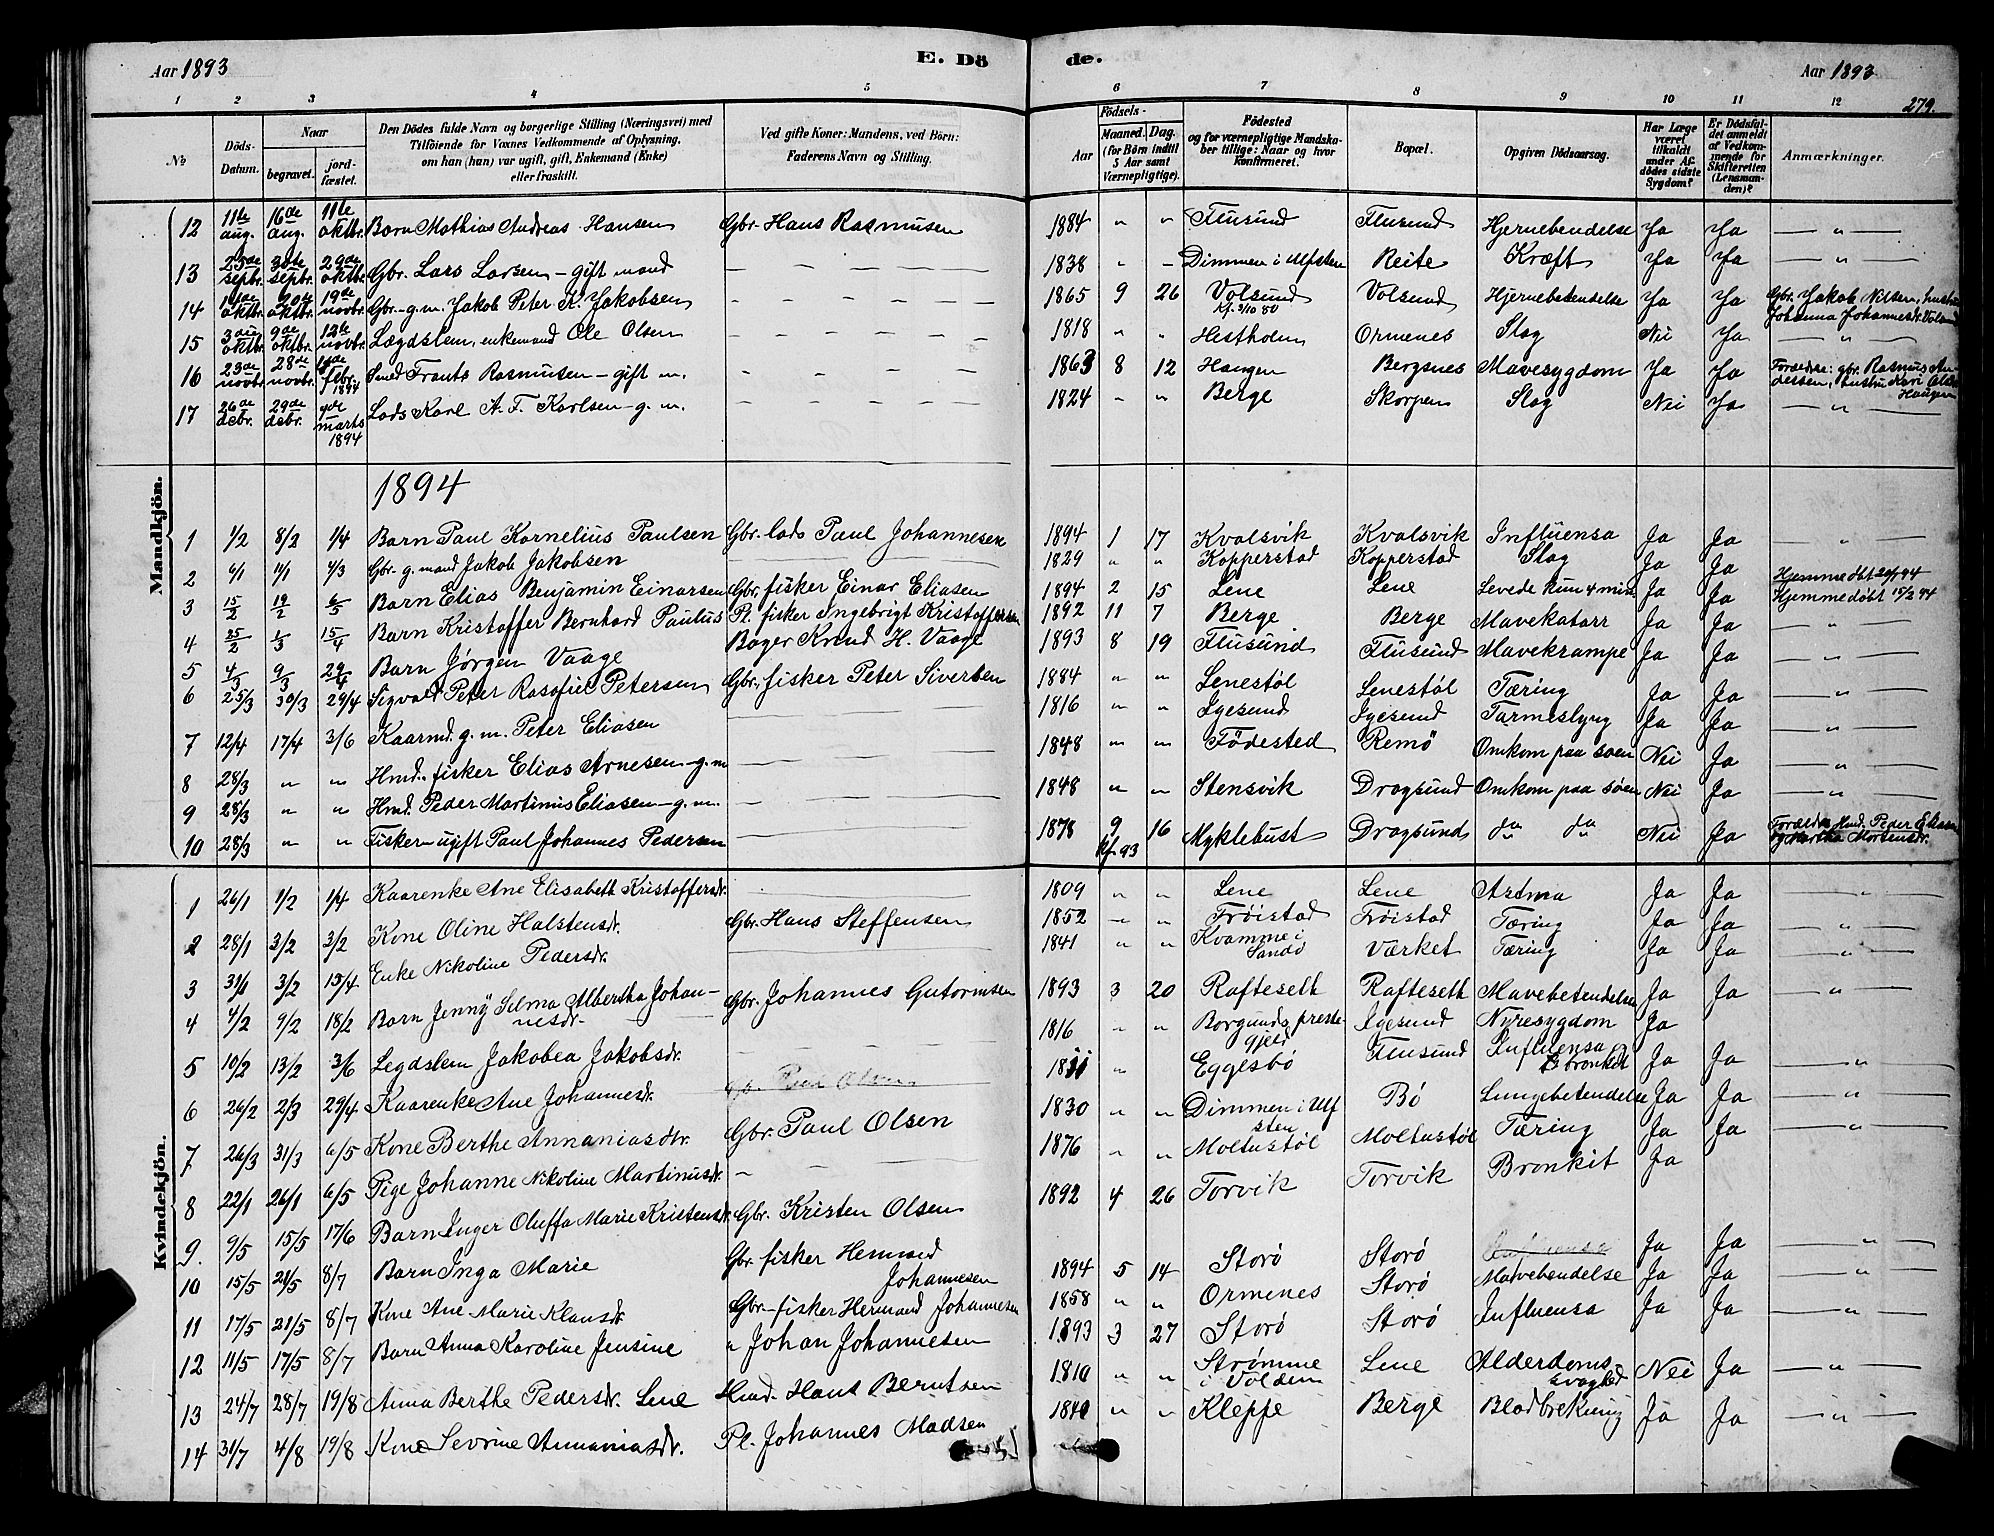 Aar 1893 E. Dö de. Aar 1893
279.
1 2 3 4 5 6 7 8 9 10 11 12
№ Döds-Datum. Naar begravet. jordfæstet. Den Dödes fulde Navn og borgerlige Stilling (Næringsvei) med Tilföiende for Voxnes Vedkommende af Oplysning, om han (hun) var ugift, gift, Enkemand (Enke) eller fraskilt. Ved gifte Koner: Mandens, ved Börn: Faderens Navn og Stilling. Aar Födsels- Maaned. Dag. (for Börn indtil 5 Aar samt Værnepligtige). Födested og for værnepligtige Mandskaber tillige: Naar og hvor Konfirmeret. Bopæl. Opgiven Dödsaarsag. Har Læge været tilkaldt under Afdödes sidste Sygdom? Er Dödsfaldet anmeldt af Vedkommende for Skifteretten (Lensmanden)? Anmærkninger.
12 11te aug. 16de aug. 11te oktbr. Barn Mathias Andreas Hansen Gbr. Hans Rasmusen 1884 " " Flusund Flusund Hjernebendelse Ja Ja — " —
13 23de septbr. 30te septbr. 29de oktbr. Gbr. Lars Larsen – gift mand — — — 1838 " " Dimmen i Ulfsten Reite Kræft Ja Ja — " —
14 oktbr. oktbr. 19de novbr. Gbr. – g.m. Jakob Peter K. Jakobsen — — — 1865 9 26 Volsund Kf. 3/10 80 Volsund Hjernebetendelse Ja Ja Gbr. Jakob Nilsen, hustru Johanna Johannesdr. Volsund
15 3die oktbr. 9de oktbr. 12te novbr. Lægdslem, enkemand Ole Olsen — — — 1818 " " Hestholm Ormenes Slag Nei Ja — " —
16 23de novbr. 28de novbr. febr. 1894 Smed Frants Rasmusen – gift m. — — — 1863 8 12 Haugen Bergsnes Mavesygdom Ja Ja Forældre: gbr. Rasmus Andersen, hustru Kari Olsdr Haugen
17 26de debr. 29de debr. marts 1894 Lods Karl A. F. Karlsen – g. m. — — — 1824 " " Berge Skorpen Slag Nei Ja — " —
Mandkjön.
1894
1 1/2 8/2 1/4 Barn Paul Kornelius Paulsen Gbr. lods Paul Johannesen 1894 1 17 Kvalsvik Kvalsvik Influensa Ja Ja — " —
2 6/1 11/1 4/3 Gbr. g. mand Jakob Jakobsen — 1829 " " Kopperstad Kopperstad Slag Ja Ja
3 15/2 19/2 6/5 Barn Elias Benjamin Einarsen Gbr. fisker Einar Eliasen 1894 2 15 Lene Lene Levede kun 4 min Ja Ja Hjemmedøbt 20/1 94 Hjemmedøbt 15/2 94
4 25/2 1/3 15/4 Barn Kristoffer Bernhard Paulus Pl. fisker Ingebrigt Kristoffersen 1892 11 7 Berge Berge Mavekatarr Ja Ja — " —
5 4/3 9/3 29/4 Barn Jørgen Vaage Bager Knud H. Vaage 1893 8 19 Flusund Flusund Mavekrampe Ja Ja — " —
6 25/3 30/3 29/4 Sigvald Peter Rasofiel Petersen Gbr. fisker Peter Sivertsen 1884 " " Lenestøl Lenestøl Tæring Ja Ja — " —
7 12/4 17/4 3/6 Kaarmd. g. m. Peter Eliasen — 1816 " " Igesund Igesund Tarmeslyng Ja Ja — " —
8 28/3 " " Hmd. fisker Elias Arnesen – g. m — 1848 " " Födested Remö Omkom paa søen Nei Ja — " —
9 28/3 " " Hmd. Peder Martinus Eliasen – g. m. — 1848 " " Stensvik Dragsund Omkom paa søen Nei Ja — " —
10 28/3 " " Fisker – ugift Paul Johannes Pedersen — 1878 9 16 Kf. 93 Myklebust Dragsund do do Nei Ja Forældre Hmd. Peder Eliasen og Martha Mortensdr.
Kvindekjön.
1 26/1 1/2 1/4 Kaarenke Ane Elisabeth Kristoffersdr. — 1809 " " Lene Lene Astma Ja Ja — " —
2 28/1 3/2 3/2 Kone Oline Halstensdr. Gbr. Hans Steffensen 1852 " " Frøistad Frøistad Tæring Ja Ja — " —
3 31/1 3/2 15/4 Enke Nikoline Pedersdr. — 1841 " " Kvamme i Sandø Værket Tæring Ja Ja — " —
4 4/2 9/2 18/2 Barn Jenny Selma Albertha Johannesdr. Gbr. Johannes Gutormsen 1893 3 20 Rafteseth Rafteseth Mavebetendelse Ja Ja — " —
5 10/2 13/2 3/6 Legdslem Jakobea Jakobsdr. — 1816 " " Borgunds prestegjeld Igesund Nyresygdom Ja
6 26/2 2/3 29/4 Kaarenke Ane Johannesdr. Paul Olsen 1811 " Eggesbø Flusund Influensa bronkit Ja Ja — " —
7 26/3 31/3 6/5 Kone Berthe Annaniasdtr. Gbr. Paul Olsen 1830 " " Dimmen i Ulfsten Bø Lungebetendelse Ja Ja — " —
8 22/1 26/1 6/5 Pige Johanne Nikoline Martinusdr. — 1876 " " Moltustøl Moltustøl Tæring Ja Ja — " —
9 9/5 15/5 17/6 Barn Inger Oluffa Marie Kristensdr. Gbr. Kristen Olsen 1892 4 26 Torvik Torvik Bronkit Ja
10 15/5 21/5 8/7 Barn Inga Marie Gbr. fisker Hermand Johannesen 1894 5 14 Storø Storø Influensa Ja Ja — " —
11 17/5 21/5 8/7 Kone Ane Marie Klausdr. Gbr. – fisker Hermand Johannesen 1858 " " Ormenes Storø Mavebendelse Ja Ja — " —
12 11/5 17/5 8/7 Barn Anna Karoline Jensine " Johan Johannesen 1893 3 27 Storø Storø Influensa Ja Ja — " —
13 24/7 28/7 19/8 Anna Berthe Pedersdr. Lene Hmd. Hans Berntsen 1810 " " Strømme i Volden Lene Alderdoms svaghed Nei Ja — " —
14 31/7 4/8 19/8 Kone Sevrine Annaniasdr. Pl. Johannes Madsen 1841 " " Kleppe Berge Blodbrekning Ja Ja — " —